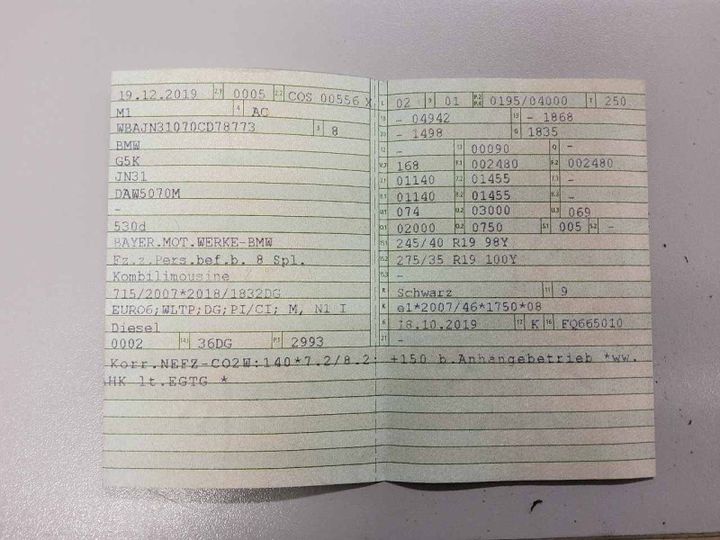 19.12.2019 0005 COS 00556 X
M1 AC
WBAJN31070CD78773 8
BMW
G5K
JN31
DAW5070M
-
530d
BAYER.MOT.WERKE-BMW
Fz.z.Pers.bef.b. 8 Spl.
Kombilimousine
715/2007*2018/1832DG
EURO6;WLTP;DG;PI/CI; M, N1 I
Diesel
0002 36DG 2993
02 01 0195/04000 250
- 04942 - 1868
- 1498 1835
- 00090 -
168 002480 002480
01140 01455 -
01140 01455 -
074 03000 069
02000 0750 005 -
245/40 R19 98Y
275/35 R19 100Y
-
Schwarz 9
e1*2007/46*1750*08
18.10.2019 K FQ665010
-
Korr.NEFZ-CO2W:140*7.2/8.2: +150 b.Anhängebetrieb *ww.
AHK lt.EGTG *